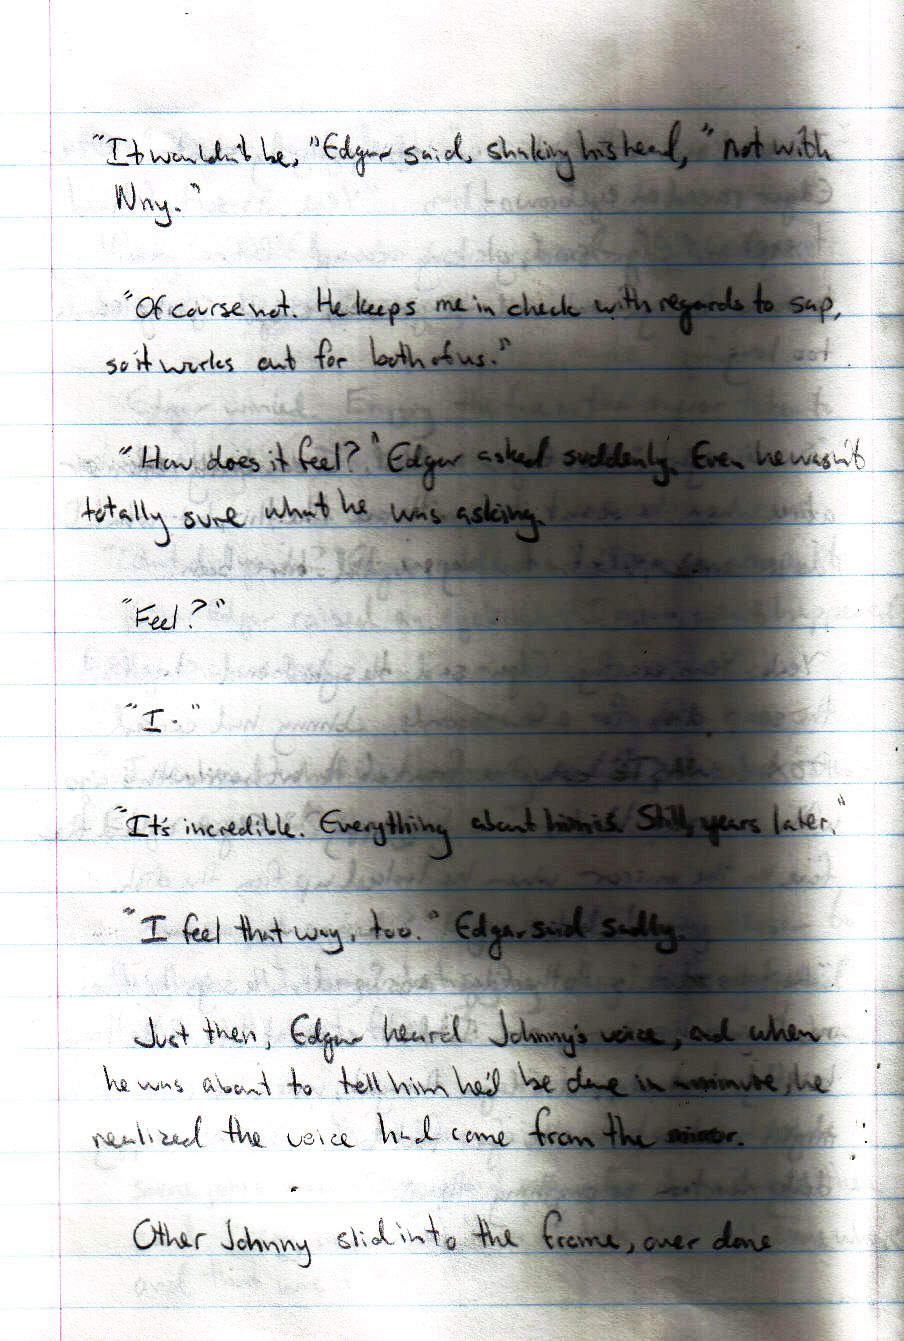 "It wouldn't be," Edgar said, shaking his head, "not with
Nny."
"Of course not. He keeps me in check with regards to sap,
so it works out for both of us."
"How does it feel?" Edgar asked suddenly. Even he wasn't
totally sure what he was asking.
"Feel?"
"I."
"It's incredible. Everything about him is. Still, years later."
"I feel that way, too." Edgar said sadly.
Just then, Edgar heard Johnny's voice, and when
he was about to tell him he'd be done in a minute, he
realized the voice had come from the mirror.
Other Johnny slid into the frame, over done